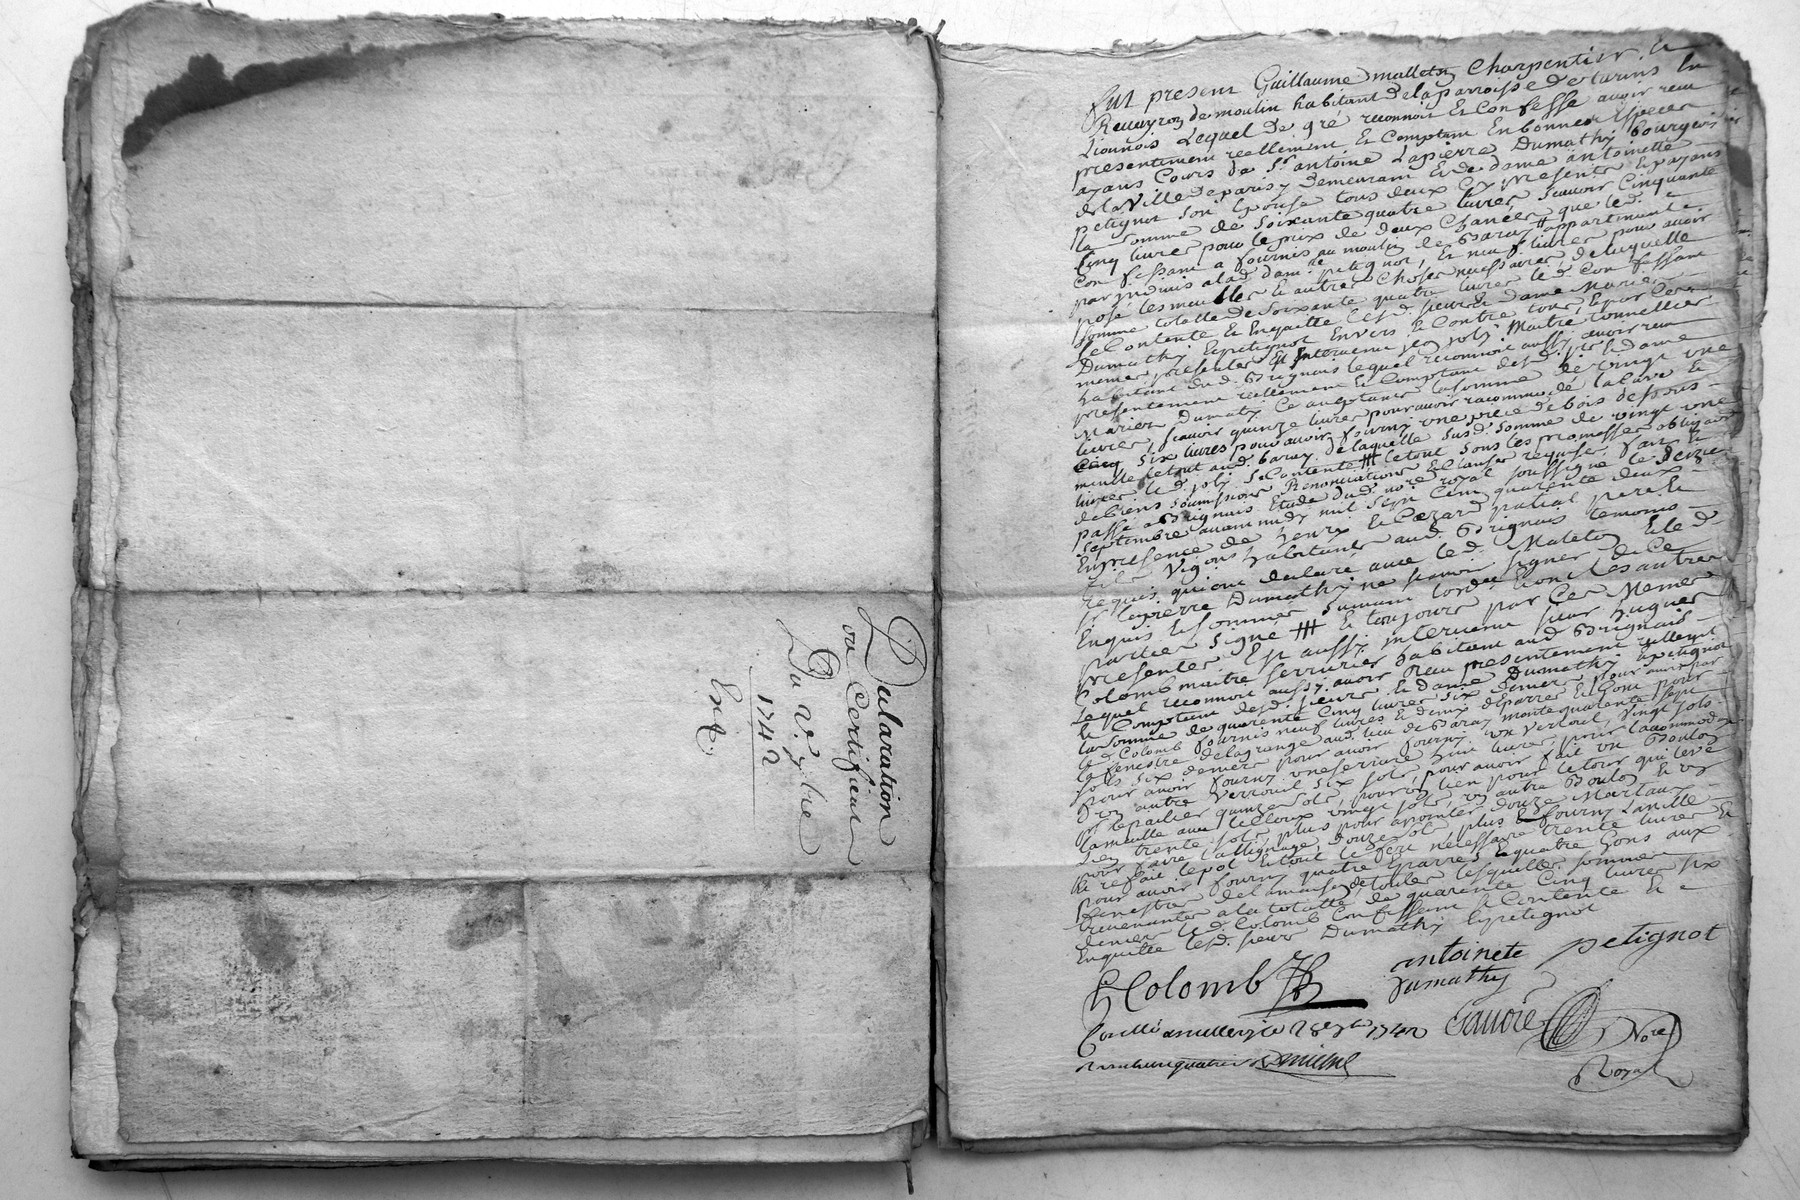 Declaration
ou Certifficat
Du Vᵉ 7bre
1742
fut present Guillaume malleton Charpentier Et
de moulin habitant de la parroisse de taurins En
Lionnois Lequel de gré reconnoit Et Confesse avoir reçu
presentement reellement Et Comptant En bonnes Especes
ayans Cours de Sr antoine Lapierre Dumathy bourgeois
de la Ville de paris y demeurant Et de dame antoinette
petignot son Epouse tous deux Cy presents Et payans
la somme de soixante quatre livres scavoir Cinquante
Cinq livres pour le prix de deux que led.
Confessant a fournis au moulin de Baray appartenant
par indivis a lad. dame petignot, Et neuf livres pour avoir
posé les meulles Et autres Choses necessaires, de laquelle
somme totalle de soixante quatre livres le d. Confessant
se Contente Et Enquitte lesd. sieur Et dame Marier
Dumathy Et petignot Envers Et Contre tous, Et par Ces
memes presentes Est Intervenu jean joly Maitre tonnellier
habitant dud. Brignais lequel reconnoit aussy avoir reçu
presentement reellement Et Comptant desd. sr Et dame
Mariez Dumaty Ce acceptants la somme de vingt une
livres, scavoir quinze livres pour avoir racommodé la Cave Et
six livres pour avoir fourny une piece de bois dessous
meulle le tout aud. baray de laquelle susd. somme de vingt une
livres le d. joly se Contente le tout sous les promesses obligaons
de biens soumissions Renonciations Et Clauses requises fait Et
passé a Brignais Etude dud. nore royal soussigné le seize
septembre avant midy mil sept Cent quarente deux
En presence de henry Et Cezard pere Et
fils Vignons habitants aud. Brignais temoins
requis qui ont declaré avec le d. Maleton Et le d.
sr lapierre Dumathy ne scavoir signer de Ce
Enquis Et sommes suivant l'ordce Et ont les autres
parties signé Et toujours par Ces Memes
presentes Est aussy intervenu sieur hugues
Colomb maitre serrurier habitant aud Brignais
Lequel reconnoit aussy avoir Reçu presentement reellement
Et Comptant desd. sieur Et dame Dumathy Et petignot
la somme de quarente Cinq livres six deniers pour avoir par
le d Colomb fournis neuf livres Et demix d'Eparres Et Gons pour
la fenestre de la grange aud. lieu de Baray monte quarente sept
sols six deniers pour avoir fourny un Vertoul, Vingt sols
pour avoir fourny une serrure huit livres, pour
D'un autre Verrouil six sols, pour avoir fait un Boulon
quinze sols, pour un lien pour le tour qui leve
la meulle avec le Cloux vingt sols, un autre Boulon Et un
Lien trente sols, plus pour apointer douze Marteaux
pour faire l'allignage, douze sols plus fourny
Et refait le pot Et tout le fere necessaire trente livres Et
pour avoir fourny quatre Eparres Et quatre Gons aux
fenestres de la maison, de toutes lesquelles sommes
revenantes a la totalle de quarente Cinq livres six
deniers le d. Colomb Confessant se Contente Et
Enquitte lesd. sieur Dumathy Et petignot
h Colomb
antoinete petignot
dumathy
Conllé a le 28 7bre 1742
Gavore
Nore
Royal